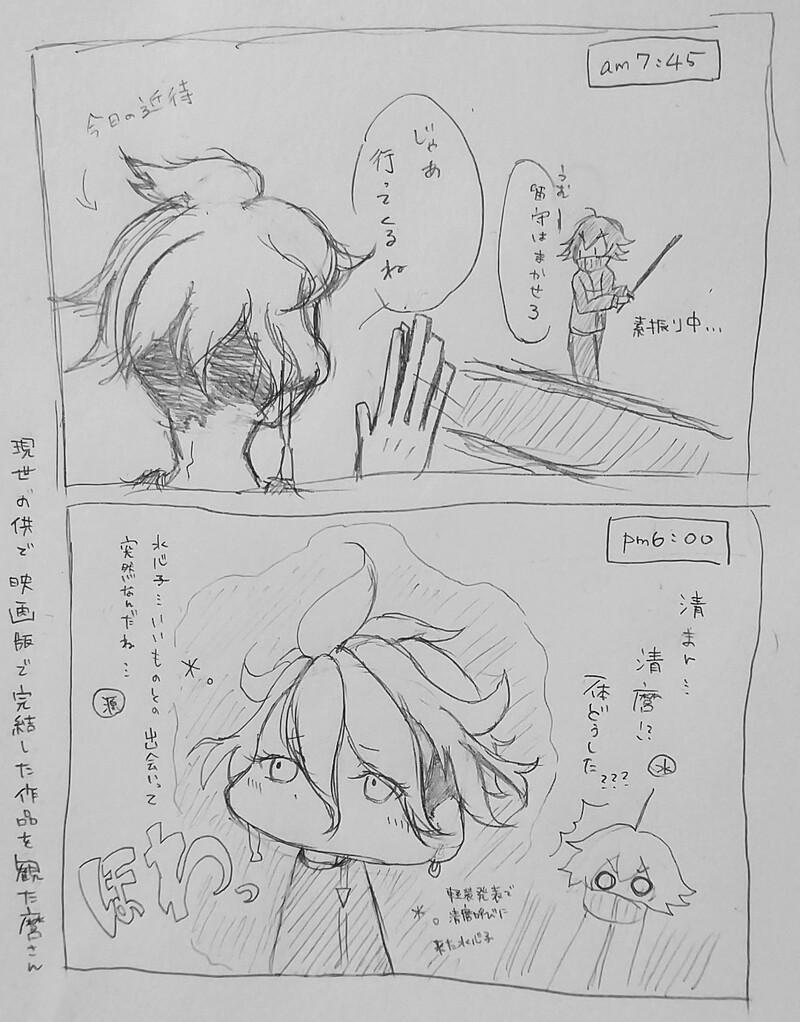 am7:45
今日の近侍
じゃあ
行ってくるね
うむー
留守はまかせろ
素振り中…
pm6:00
清まr…
清麿!?
一体どうした???
水
水心子…いいものとの出会いって
突然なんだね…
源
ほわっ
軽装発表で
清麿呼びに
来た水心子
現世お供で映画版で完結した作品を観た麿さん